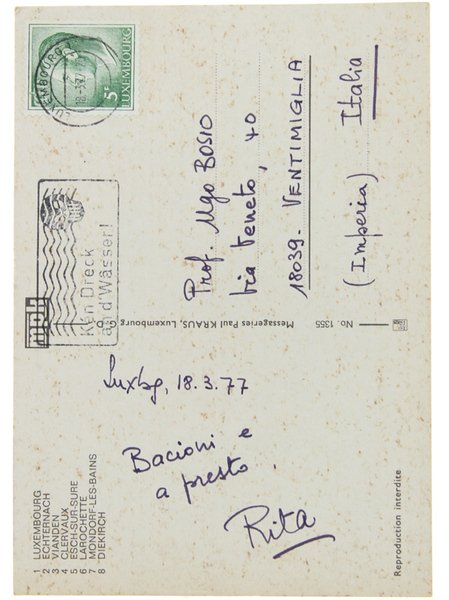 LUXEMBOURG
18-3-77
5F
LUXEMBOURG
Kén Dreck
an d'Wässer!
mph
Prof. Ugo BOSIO
Via Veneto, 40
18039. VENTIMIGLIA
(Imperia) Italia
Luxbg, 18.3.77
Bacioni e
a presto.
Rita
1 LUXEMBOURG
2 ECHTERNACH
3 VIANDEN
4 CLERVAUX
5 ESCH-SUR-SURE
6 LAROCHETTE
7 MONDORF-LES-BAINS
8 DIEKIRCH
Messageries Paul KRAUS, Luxembourg G. D.
No. 1355
Reproduction interdite